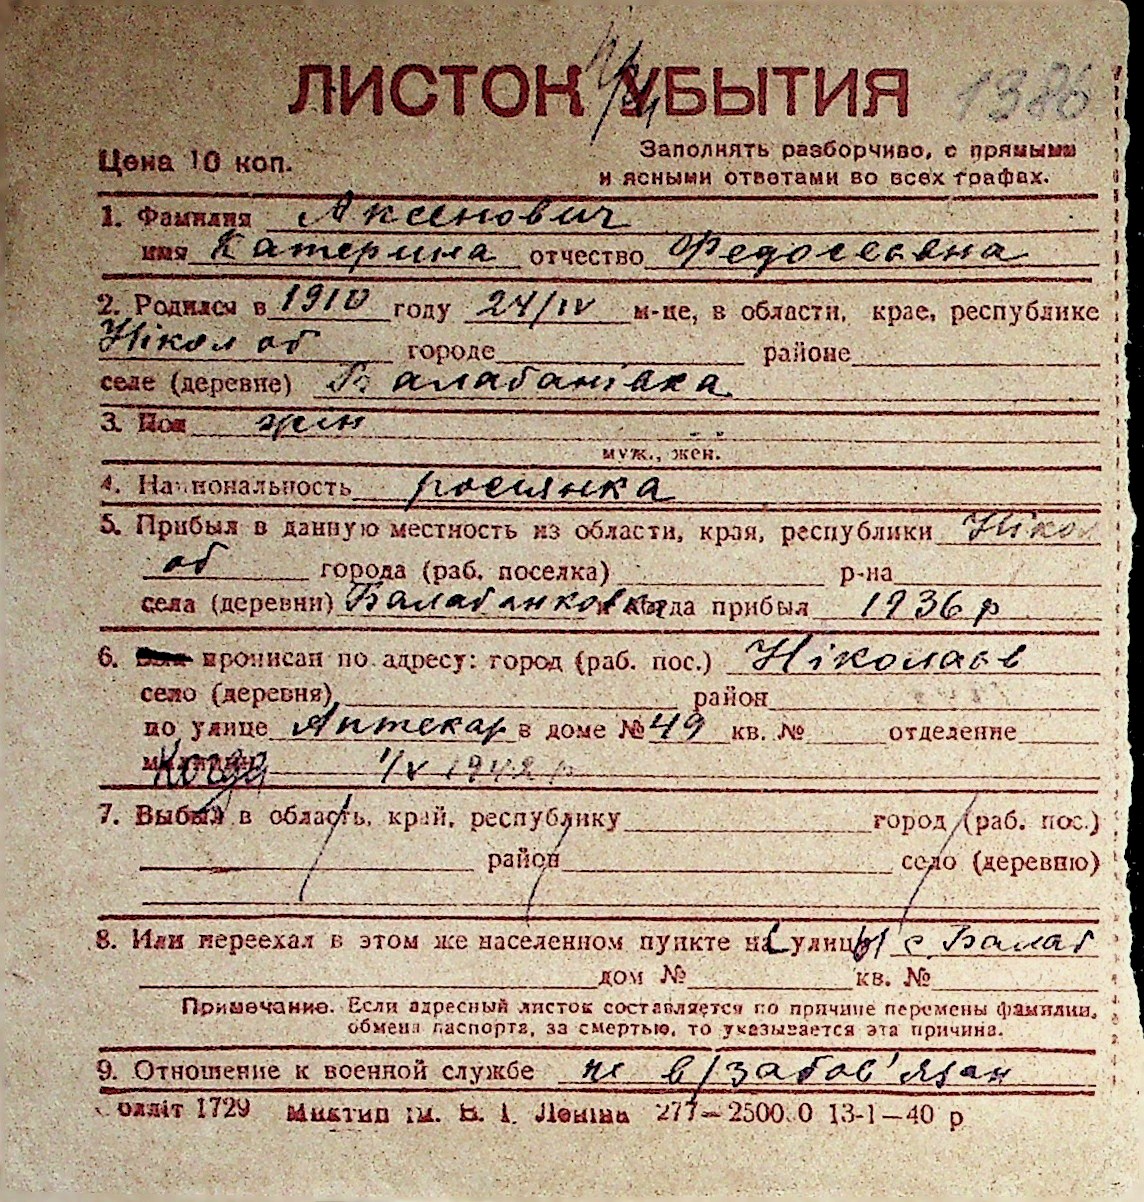 ЛИСТОК УБЫТИЯ 1386
Цена 10 коп. Заполнять разборчиво, с прямыми
и ясными ответами во всех графах.
1. Фамилия Аксенович
имя Катерина отчество Федосеевна
2. Родился в 1910 году 24/IV м-це, в области, крае, республике
Нікол об городе районе
селе (деревне) Балабанівка
3. Пол жін
муж., жен.
4. Национальность росіянка
5. Прибыл в данную местность из области, края, республики Нікол
об города (раб. поселка) р-на
села (деревни) Балабанковка и когда прибыл 1936 р
6. прописан по адресу: город (раб. пос.) Ніколаєв
село (деревня) район
по улице Аптекар в доме № 49 кв. № отделение
Когда 1/V 1942 р
7. Выбыл в область, край, республику город (раб. пос.)
район село (деревню)
8. Или переехал в этом же населенном пункте на улицы с Балаб
дом № кв. №
Примечание. Если адресный листок составляется по причине перемены фамилии,
обмена паспорта, за смертью, то указывается эта причина.
9. Отношение к военной службе не в/забов'язан
олліт 1729 Миктип ім. В. І. Леніна 277—2500.0 13-1—40 р